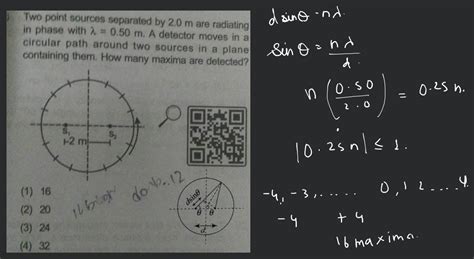 Two point sources separated by 2.0 m are radiating
in phase with λ = 0.50 m. A detector moves in a
circular path around two sources in a plane
containing them. How many maxima are detected?
S₁ S₂
2 m
(1) 16
(2) 20
(3) 24
(4) 32
dsinθ
θ θ
d
d sinθ = nλ
Sinθ = nλ/d.
n (0.50/2.0) = 0.25 n.
|0.25n| ≤ 1.
-4, -3, ..... 0, 1 2 .... 4
-4 +4
16 maxima.